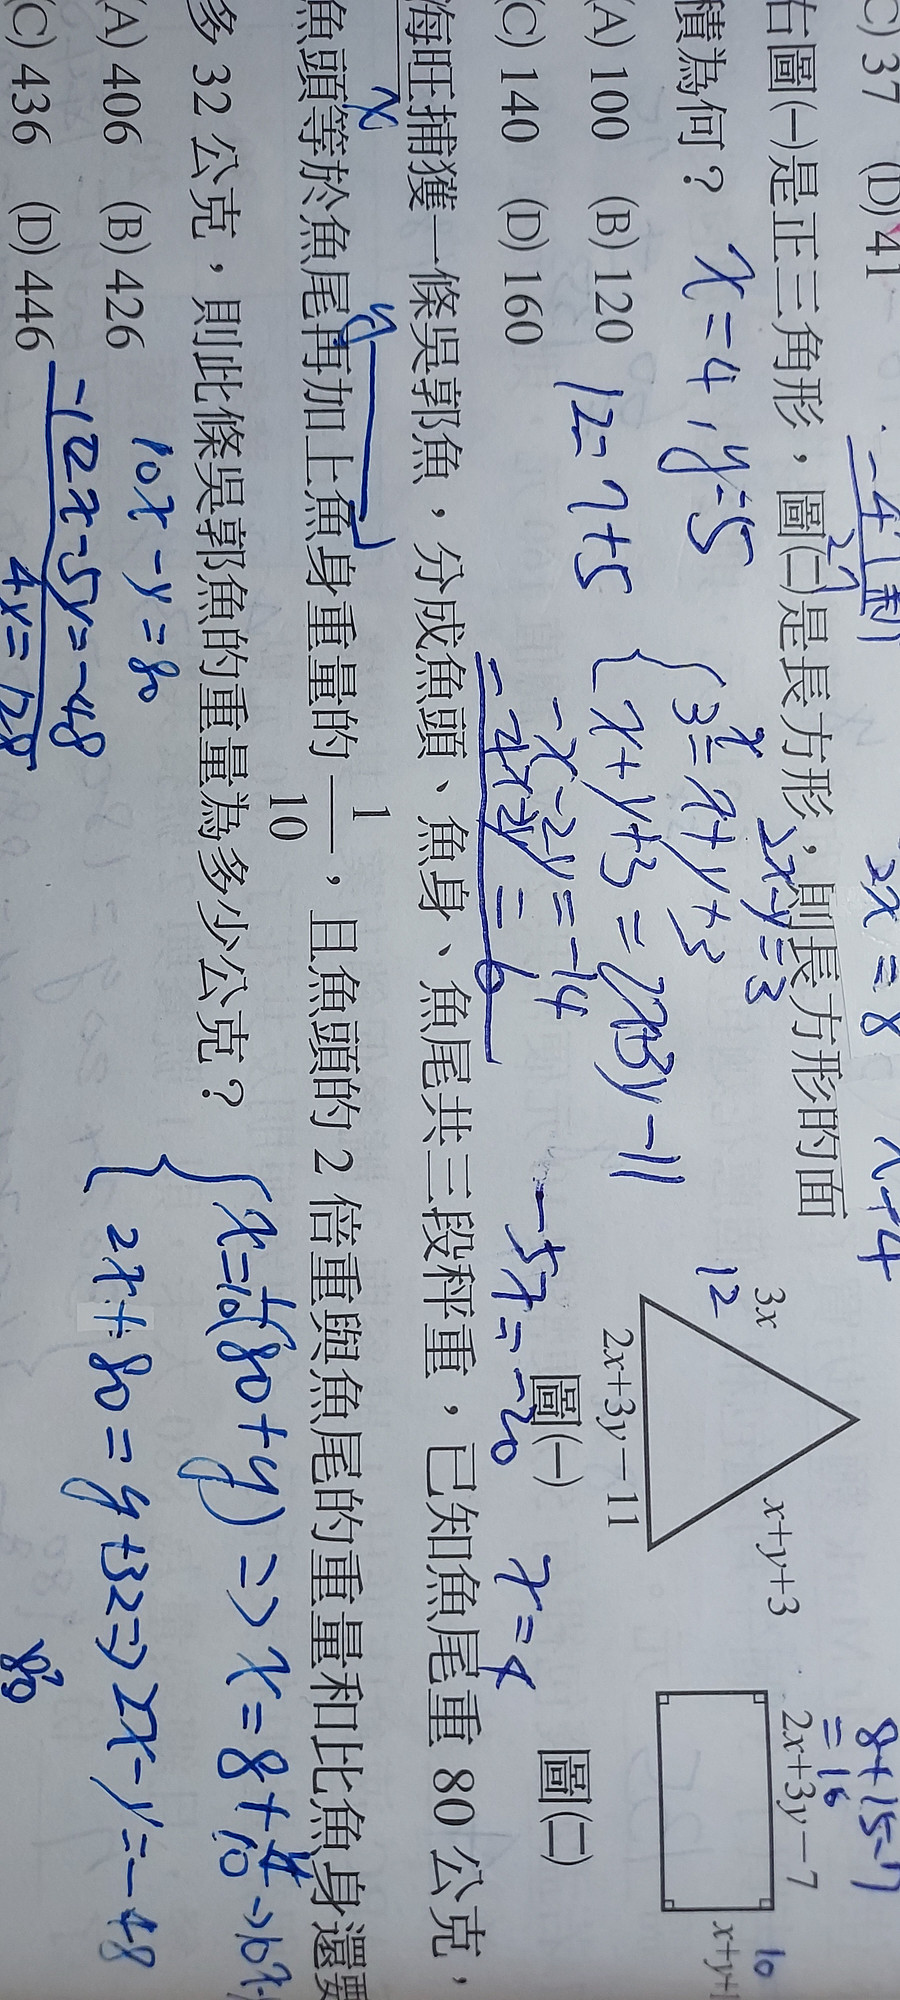 C) 37 (D) 41
-4
2x = 8
x+4
8+15-7
=16
右圖(一)是正三角形，圖(二)是長方形，則長方形的面
積為何？
x=4, y=5
2x-y=3
(A) 100 (B) 120
(C) 140 (D) 160
12= 7+5
{3x= x+y+3
x+y+3 = 2x+3y-11
-x-2y=-14
-4x-2y= 6
-5x=-20
x=4
12
3x
x+y+3
2x+3y-11
圖(一)
2x+3y-7
x+y+1
10
圖(二)
海旺捕獲一條吳郭魚，分成魚頭、魚身、魚尾共三段秤重，已知魚尾重 80 公克，
x
y
魚頭等於魚尾再加上魚身重量的 1/10，且魚頭的 2 倍重與魚尾的重量和比魚身還要
多 32 公克，則此條吳郭魚的重量為多少公克？
(A) 406 (B) 426
(C) 436 (D) 446
{x=1/10(80+y) => x=8+
2x+80=y+32=>2x-y=-48
10x-y=80
-12x-5y=-48
4y=128